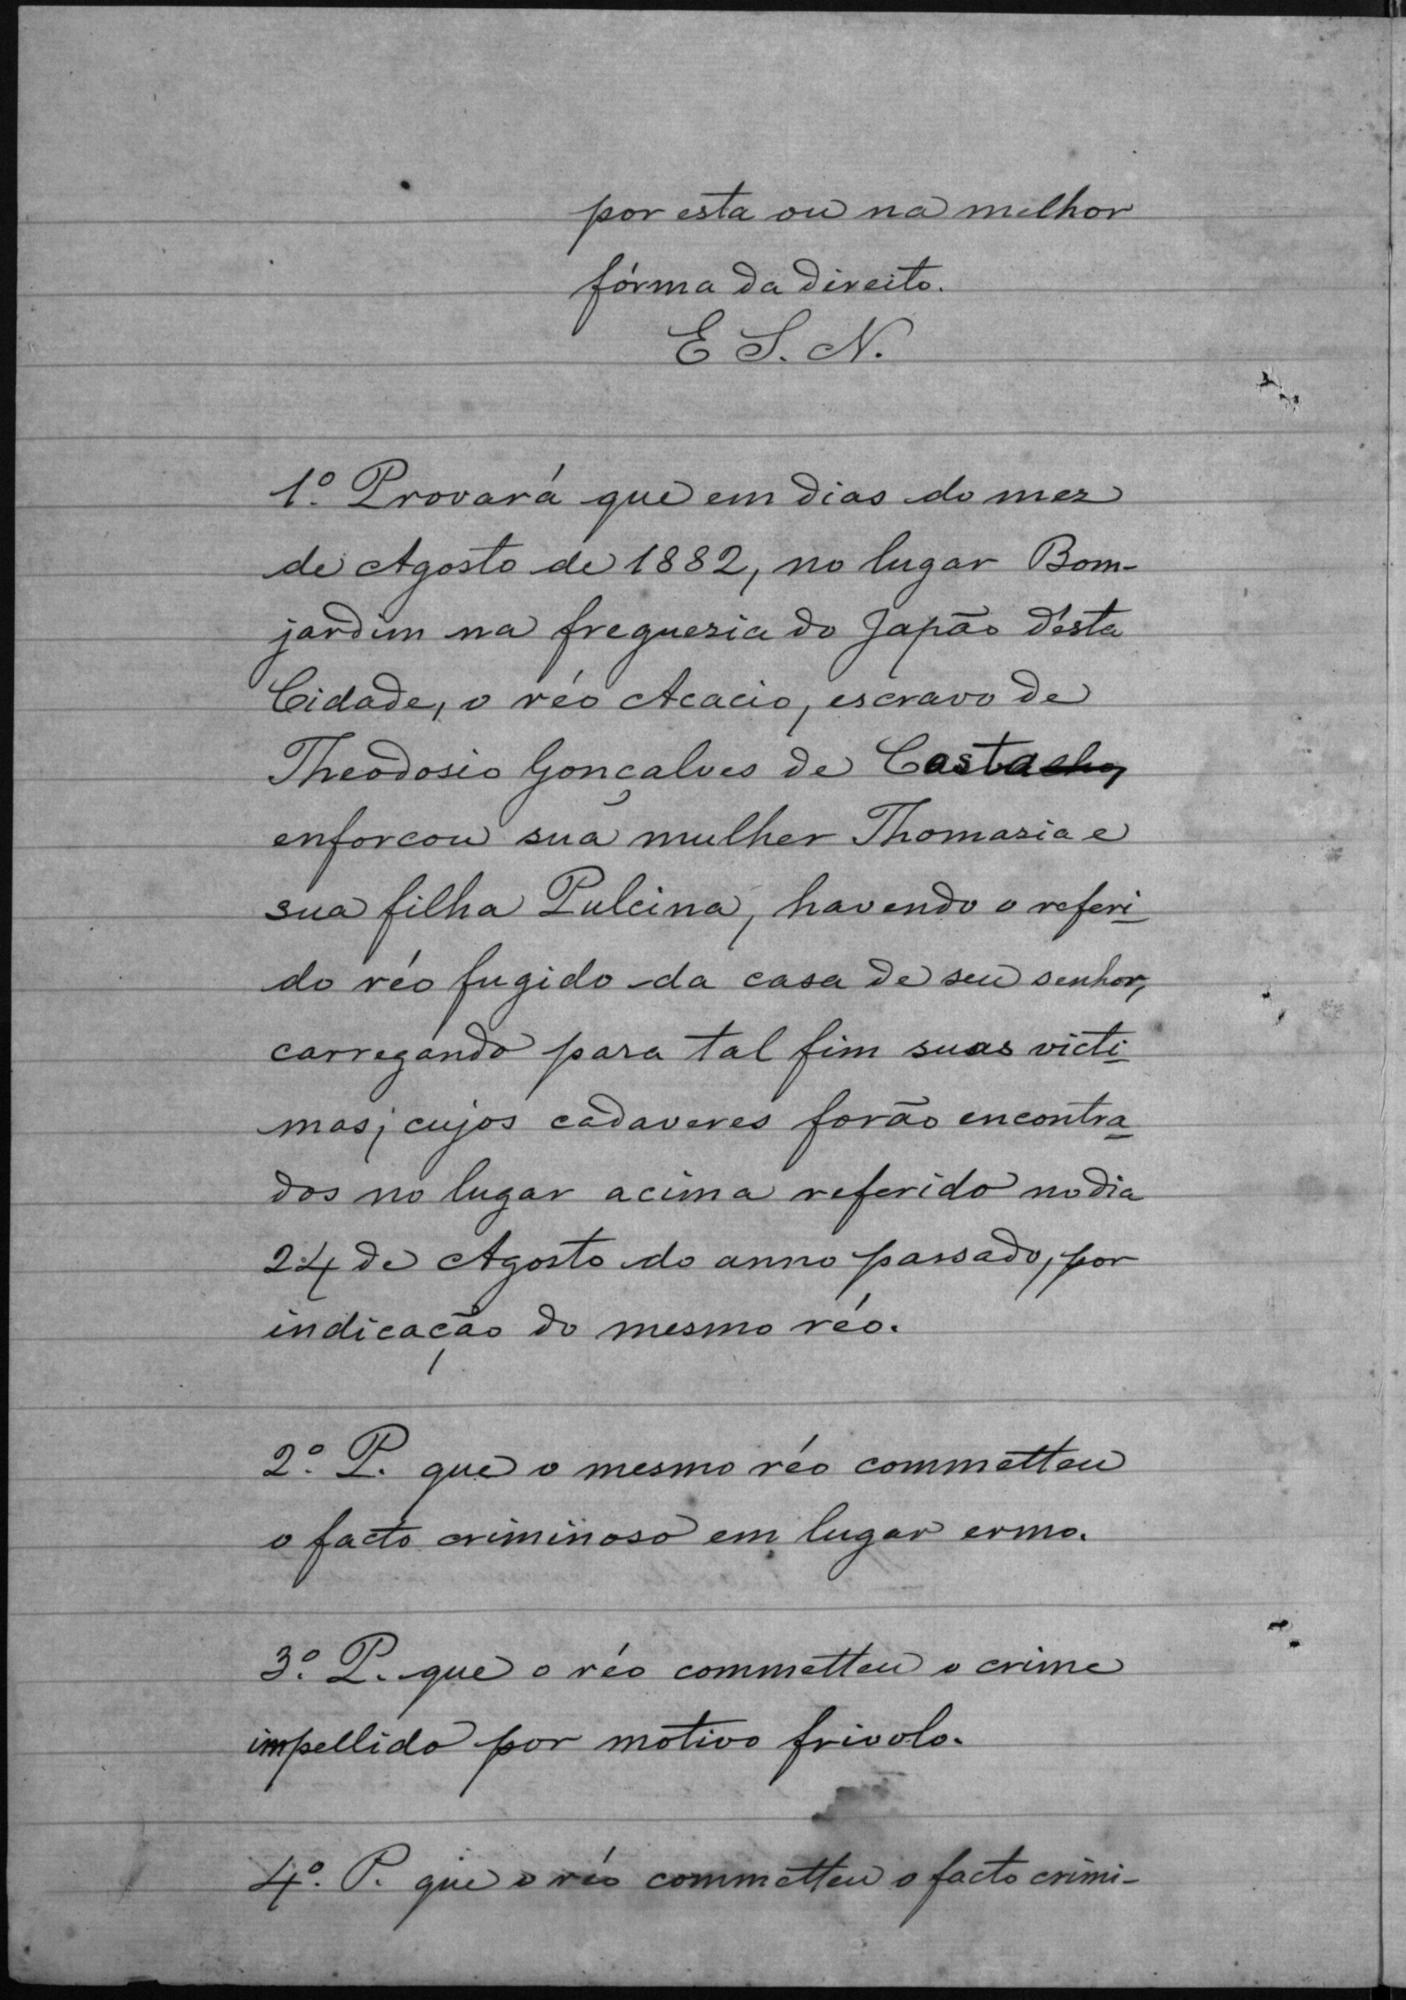 por esta ou na melhor
fórma da direito.
E S. N.
1º. Provará que em dias do mez
de Agosto de 1882, no lugar Bom-
jardim na freguezia do Japão d'ésta
Cidade, o réo Acacio, escravo de
Theodosio Gonçalves de
enforcou sua mulher Thomazia e
sua filha Pulcina, havendo o referi-
do réo fugido da casa de seu senhor,
carregando para tal fim suas victi-
mas; cujos cadaveres forão encontra-
dos no lugar acima referido no dia
24 de Agosto do anno passado, por
indicação do mesmo réo.
2º. P. que o mesmo réo commetteu
o facto criminoso em lugar ermo.
3º. P. que o réo commetteu o crime
impellido por motivo frivolo.
4º. P. que o réo commetteu o facto crimi-